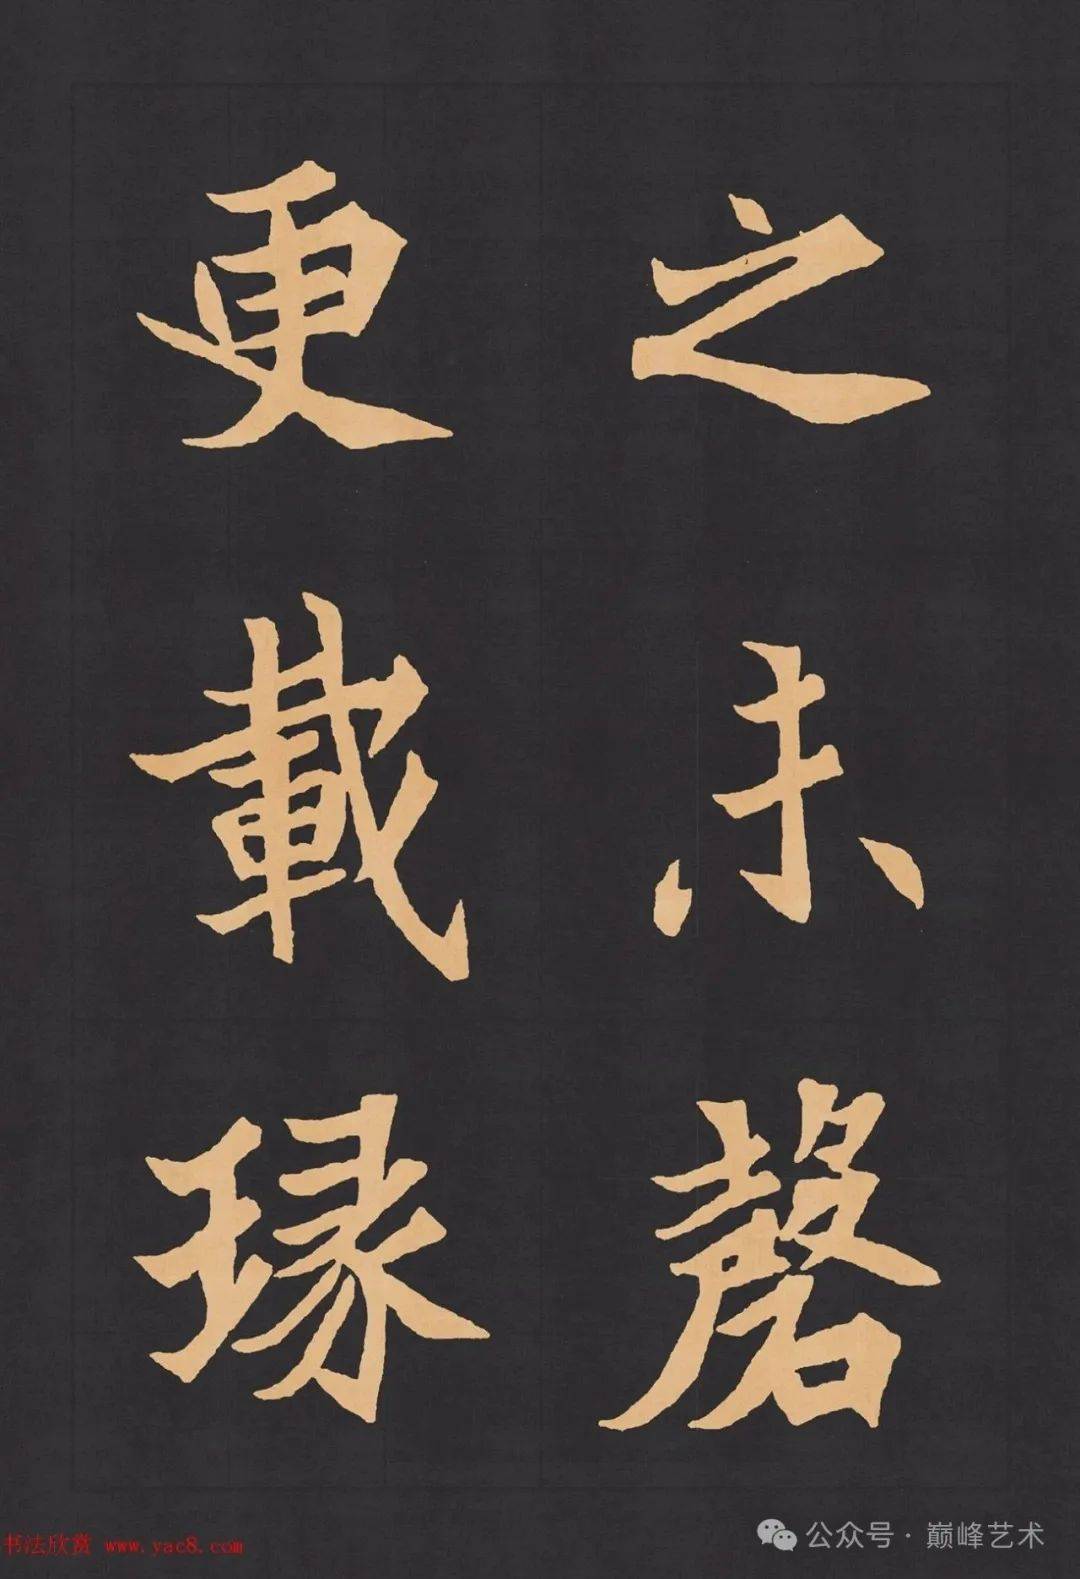 之未磬
更載瑑
书法欣赏 www.yac8.com
公众号·巅峰艺术